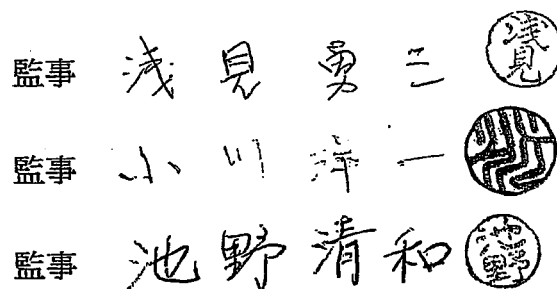 監事 浅見勇二 浅見
監事 小川洋一
監事 池野清和 池野